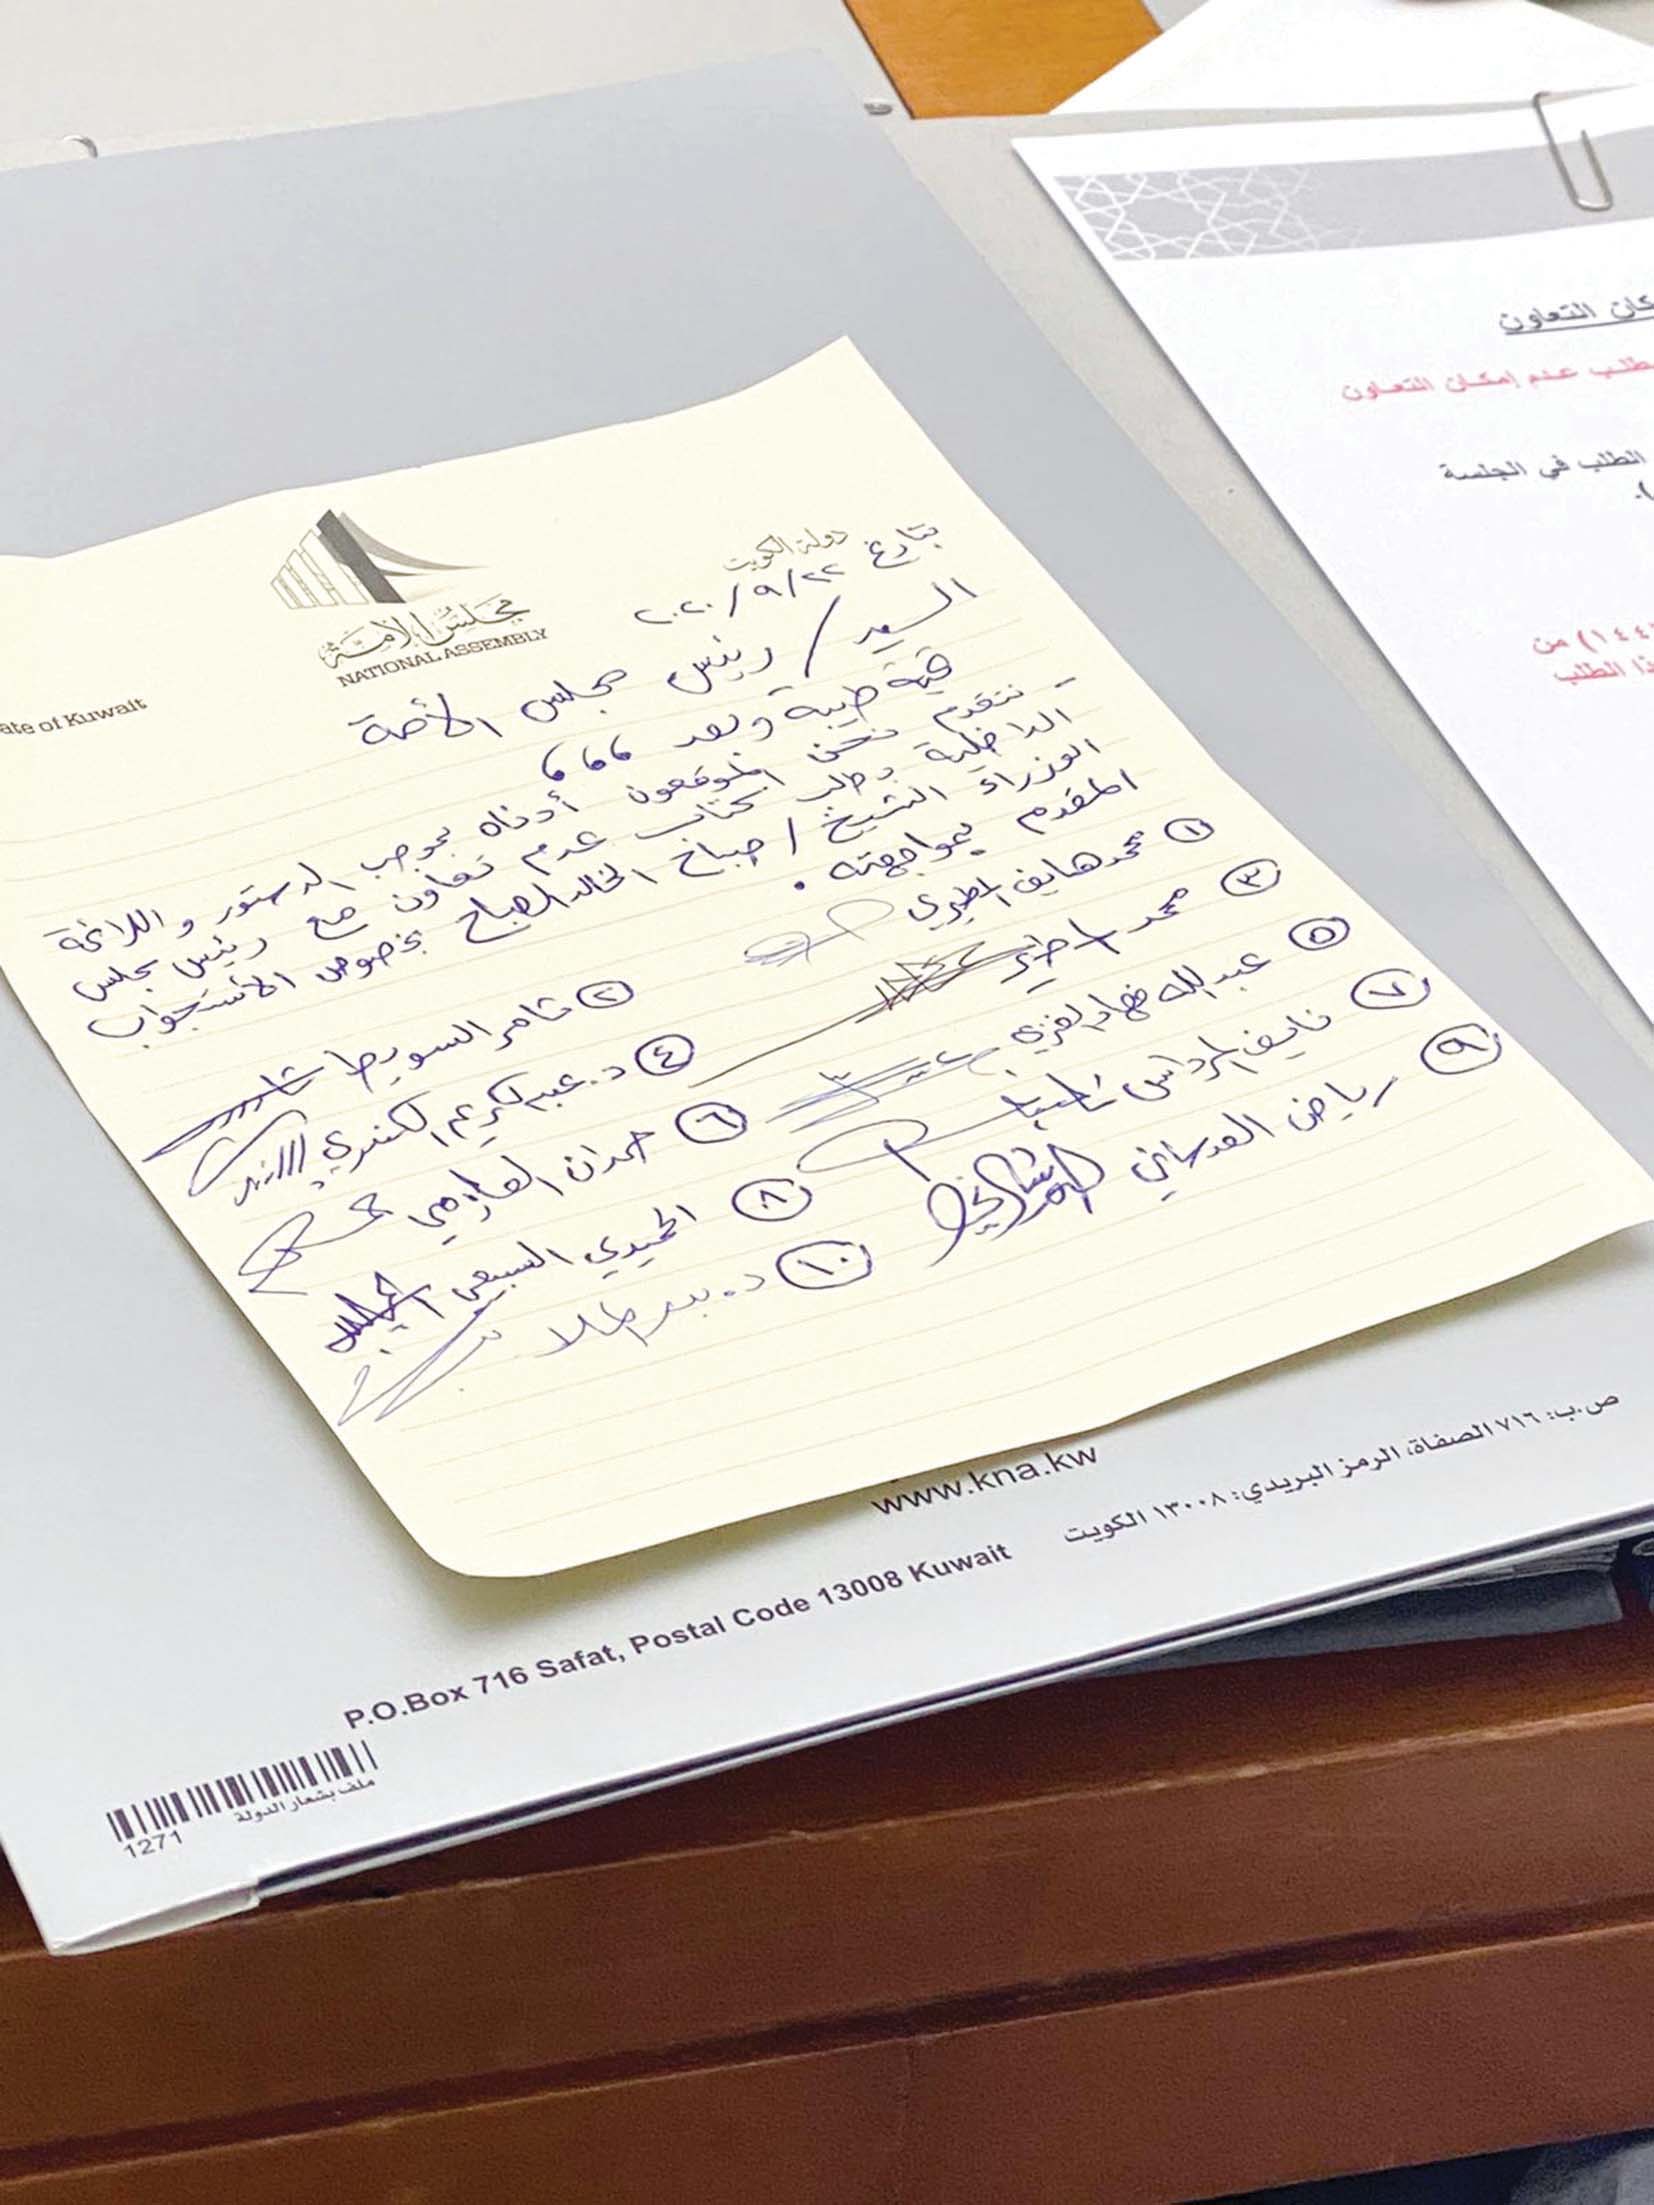 دولة الكويت
مجلس الأمة
NATIONAL ASSEMBLY
ate of Kuwait
بتاريخ ٢٢/٩/٢٠٢٠
السيد / رئيس مجلس الأمة
تحية طيبة وبعد ،،،
- نتقدم نحن الموقعون أدناه بموجب الدستور و اللائحة
الداخلية بطلب كتاب عدم تعاون مع رئيس مجلس
الوزراء الشيخ / صباح الخالد الصباح بخصوص الأستجواب
المقدم بمواجهته .
١ محمد هايف المطيري
٢ ثامر السويط
٣ محمد المطير
٤ د.عبدالكريم الكندري
٥ عبدالله فهاد العنزي
٦ حمدان العازمي
٧ نايف المرداس
٨ الحميدي السبيعي
٩ رياض العدساني
١٠ د.بدر الملا
كان التعاون
طلب عدم إمكان التعاون
الطلب في الجلسة
).
١٤٤) من
ذا الطلب
www.kna.kw
ص.ب: ٧١٦ الصفاة، الرمز البريدي: ١٣٠٠٨ الكويت
P.O.Box 716 Safat, Postal Code 13008 Kuwait
ملف بشعار الدولة
1271